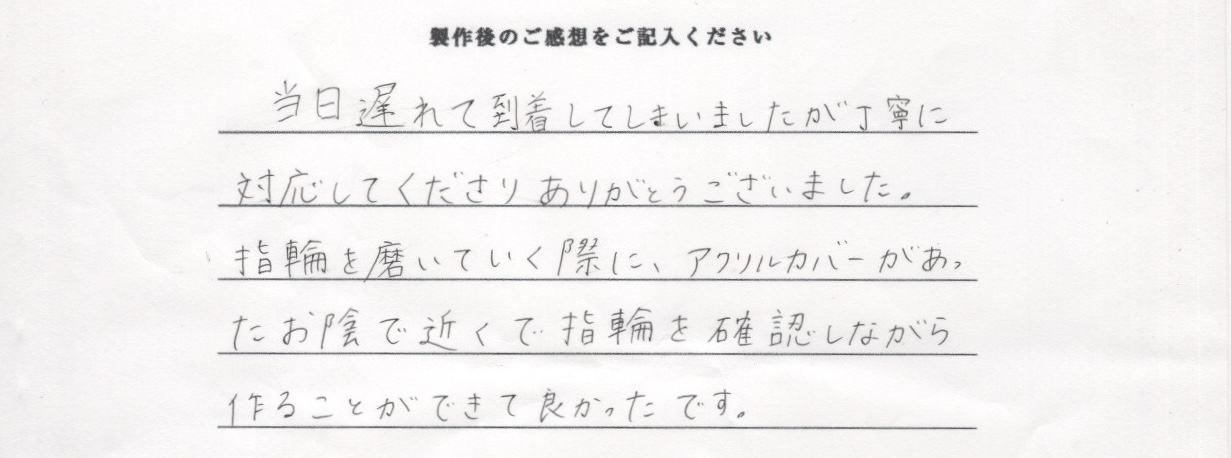 製作後のご感想をご記入ください
当日遅れて到着してしまいましたが丁寧に
対応してくださりありがとうございました。
指輪を磨いていく際に、アクリルカバーがあっ
たお陰で近くで指輪を確認しながら
作ることができて良かったです。